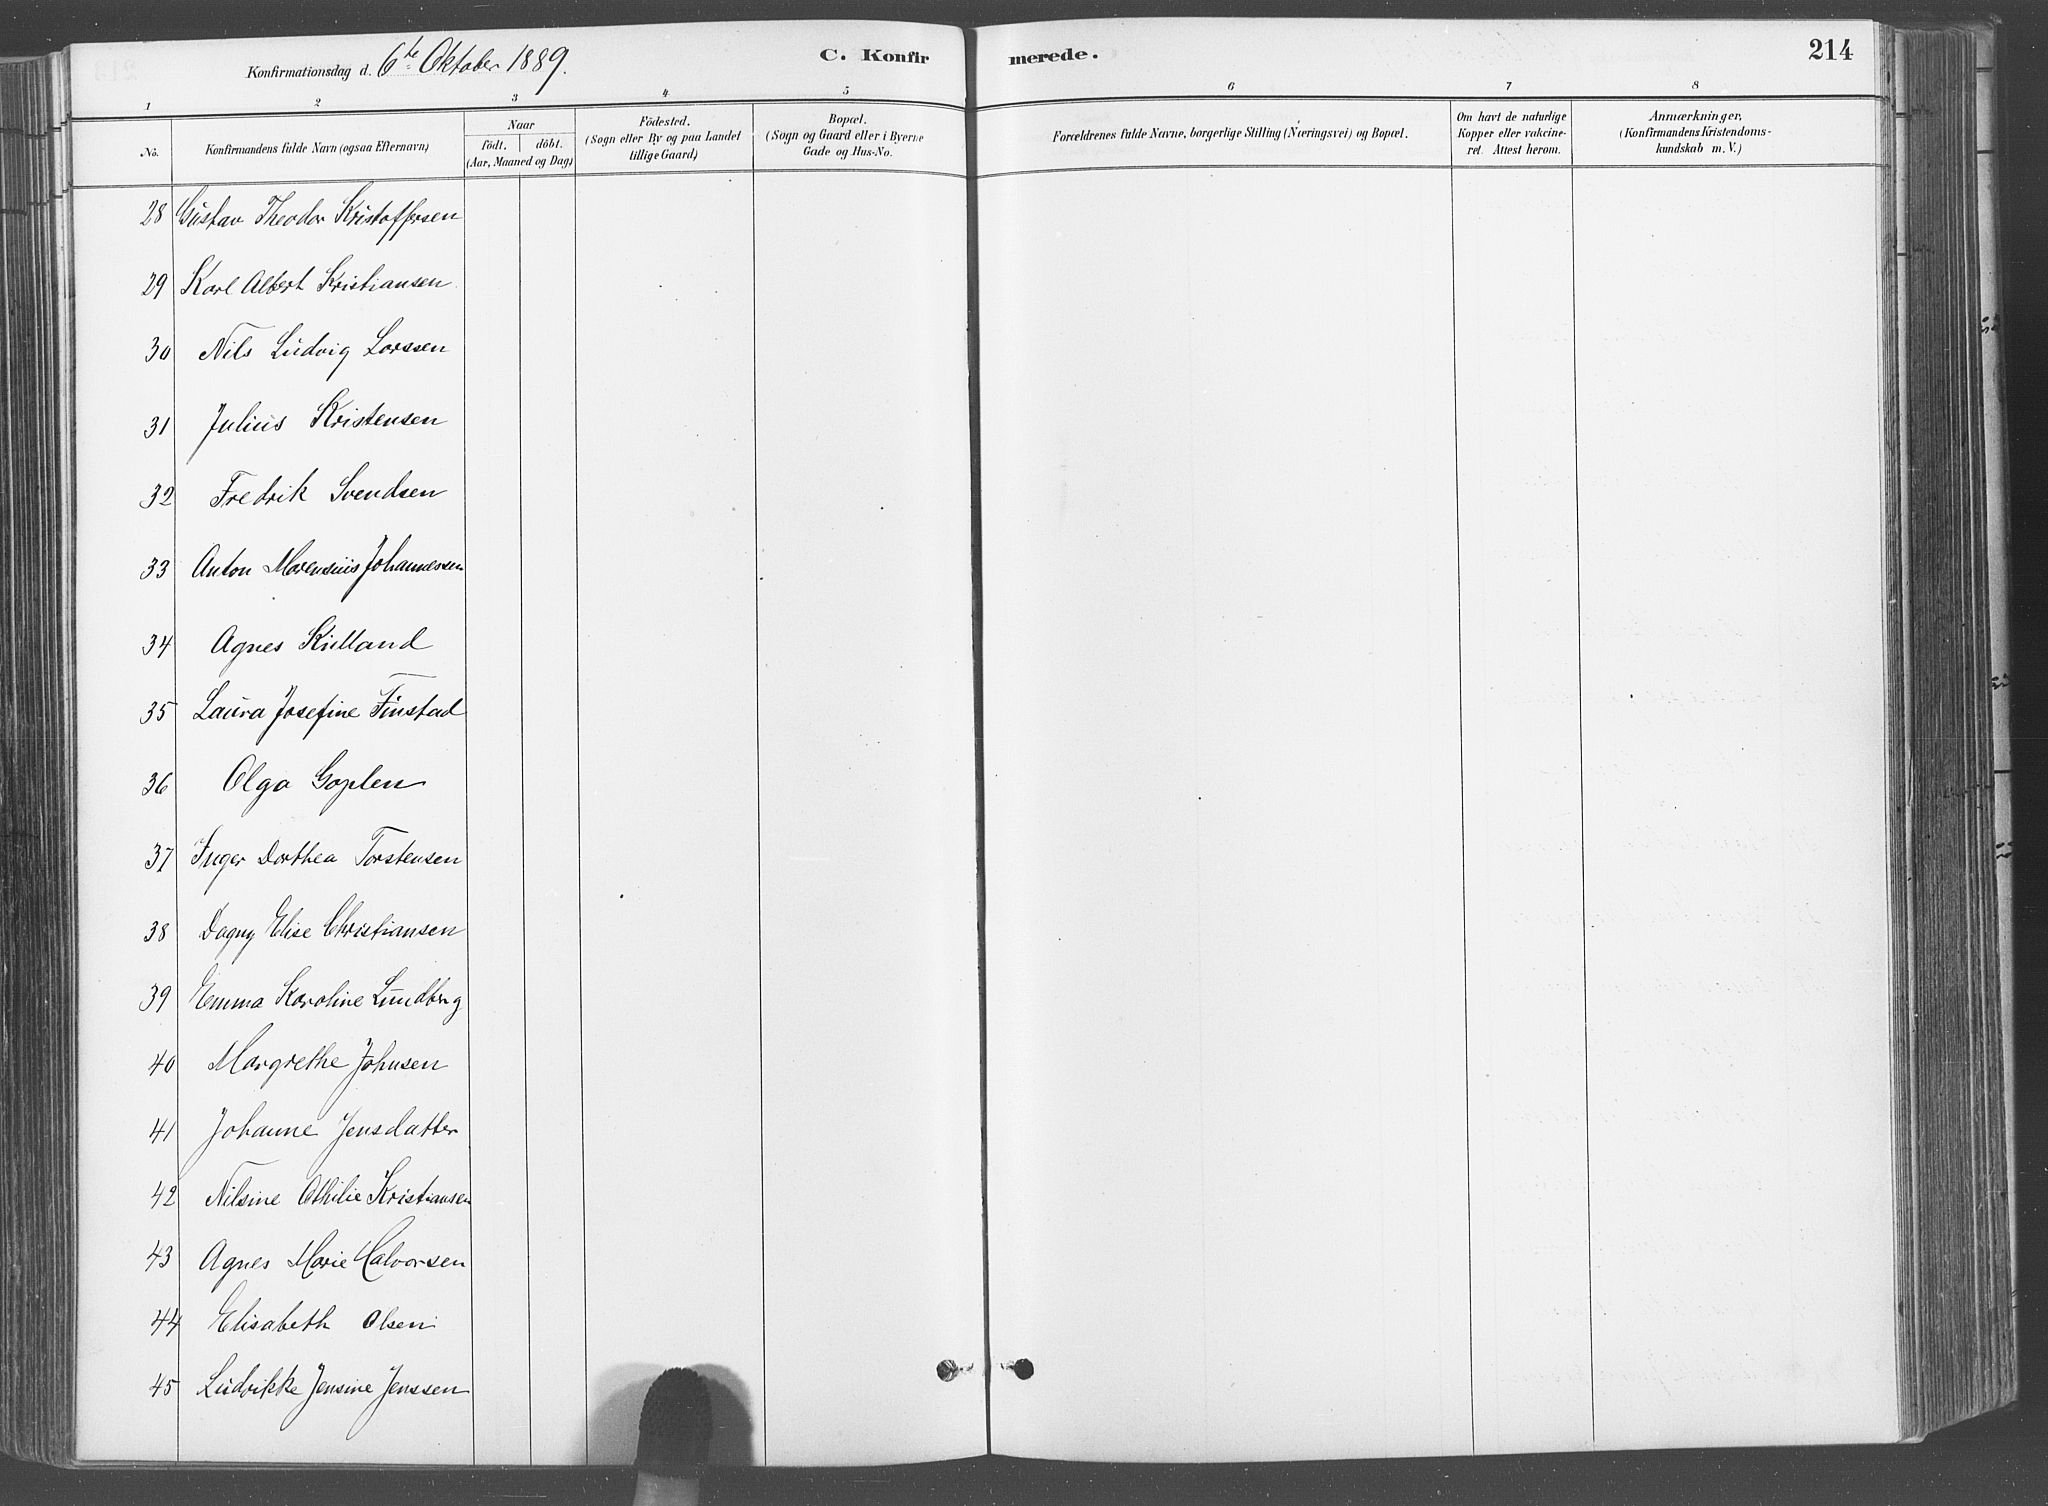 Konfirmationsdag d. 6te Oktober 1889.
C. Konfirmerede.
214
1 2 3 4 5 6 7 8
No.
Konfirmandens fulde Navn (ogsaa Efternavn)
Naar
födt. döbt.
(Aar, Maaned og Dag)
Födested.
(Sogn eller By og paa Landet
tillige Gaard)
Bopæl.
(Sogn og Gaard eller i Byerne
Gade og Hus-No.
Forældrenes fulde Navne, borgerlige Stilling (Næringsvei) og Bopæl.
Om havt de naturlige
Kopper eller vakcine-
ret. Attest herom.
Anmærkninger,
(Konfirmandens Kristendoms-
kundskab m. V.)
28 Gustav Theodor Kristoffersen
29 Karl Albert Kristiansen
30 Nils Ludvig Larssen
31 Julius Kristensen
32 Fredrik Svendsen
33 Anton Marensius Johannessen
34 Agnes Kielland
35 Laura Josefine Finstad
36 Olga Goplen
37 Inger Dorthea Torstensen
38 Dagny Elise Christiansen
39 Emma Karoline Lundberg
40 Margrethe Johnsen
41 Johanne Jensdatter
42 Nilsine Othilie Kristiansen
43 Agnes Marie Halvorsen
44 Elisabeth Olsen
45 Ludvikke Jensine Jenssen